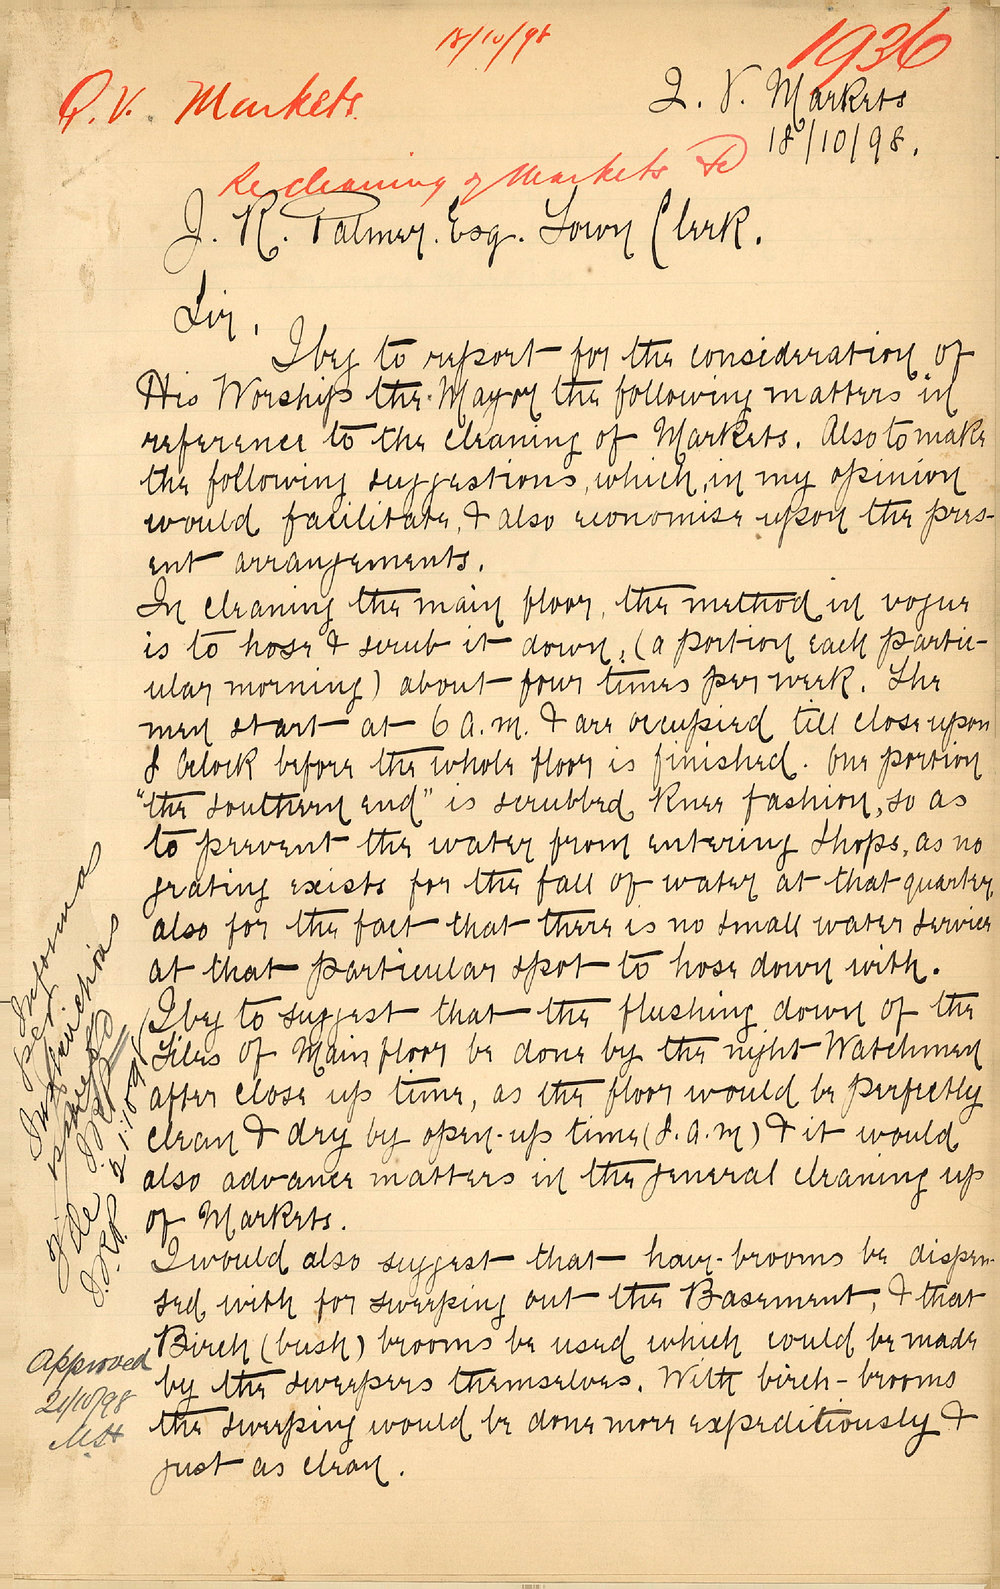 18/10/98
1936
Q.V. Markets.
Q. V. Markets
18/10/98.
Re cleaning of Markets &c
J. R. Palmer. Esq. Town Clerk.
Sir,
I beg to report for the consideration of
His Worship the Mayor the following matters in
reference to the cleaning of Markets. Also to make
the following suggestions, which, in my opinion
would facilitate, & also economise upon the pres-
ent arrangements.
In cleaning the main floor, the method in vogue
is to hose & scrub it down, (a portion each partic-
ular morning) about four times per week. The
men start at 6 a.m. & are occupied till close upon
8 oclock before the whole floor is finished. One portion
"the southern end" is scrubbed knee fashion, so as
to prevent the water from entering shops, as no
grating exists for the fall of water at that quarter,
also for the fact that there is no small water service
at that particular spot to hose down with.
I beg to suggest that the flushing down of the
Tiles of Main floor be done by the night Watchmen
after close up time, as the floor would be perfectly
clean & dry by open-up time (8.a.m) & it would
also advance matters in the general cleaning up
of Markets.
I would also suggest that hair-brooms be dispen-
sed with for sweeping out the Basement, & that
Birch (bush) brooms be used which could be made
by the sweepers themselves. With birch-brooms
the sweeping would be done more expeditiously &
just as clean.
Informa
per
Instructions
J.R.P.
21.10.98
J.R.P.
Approved
21/10/98